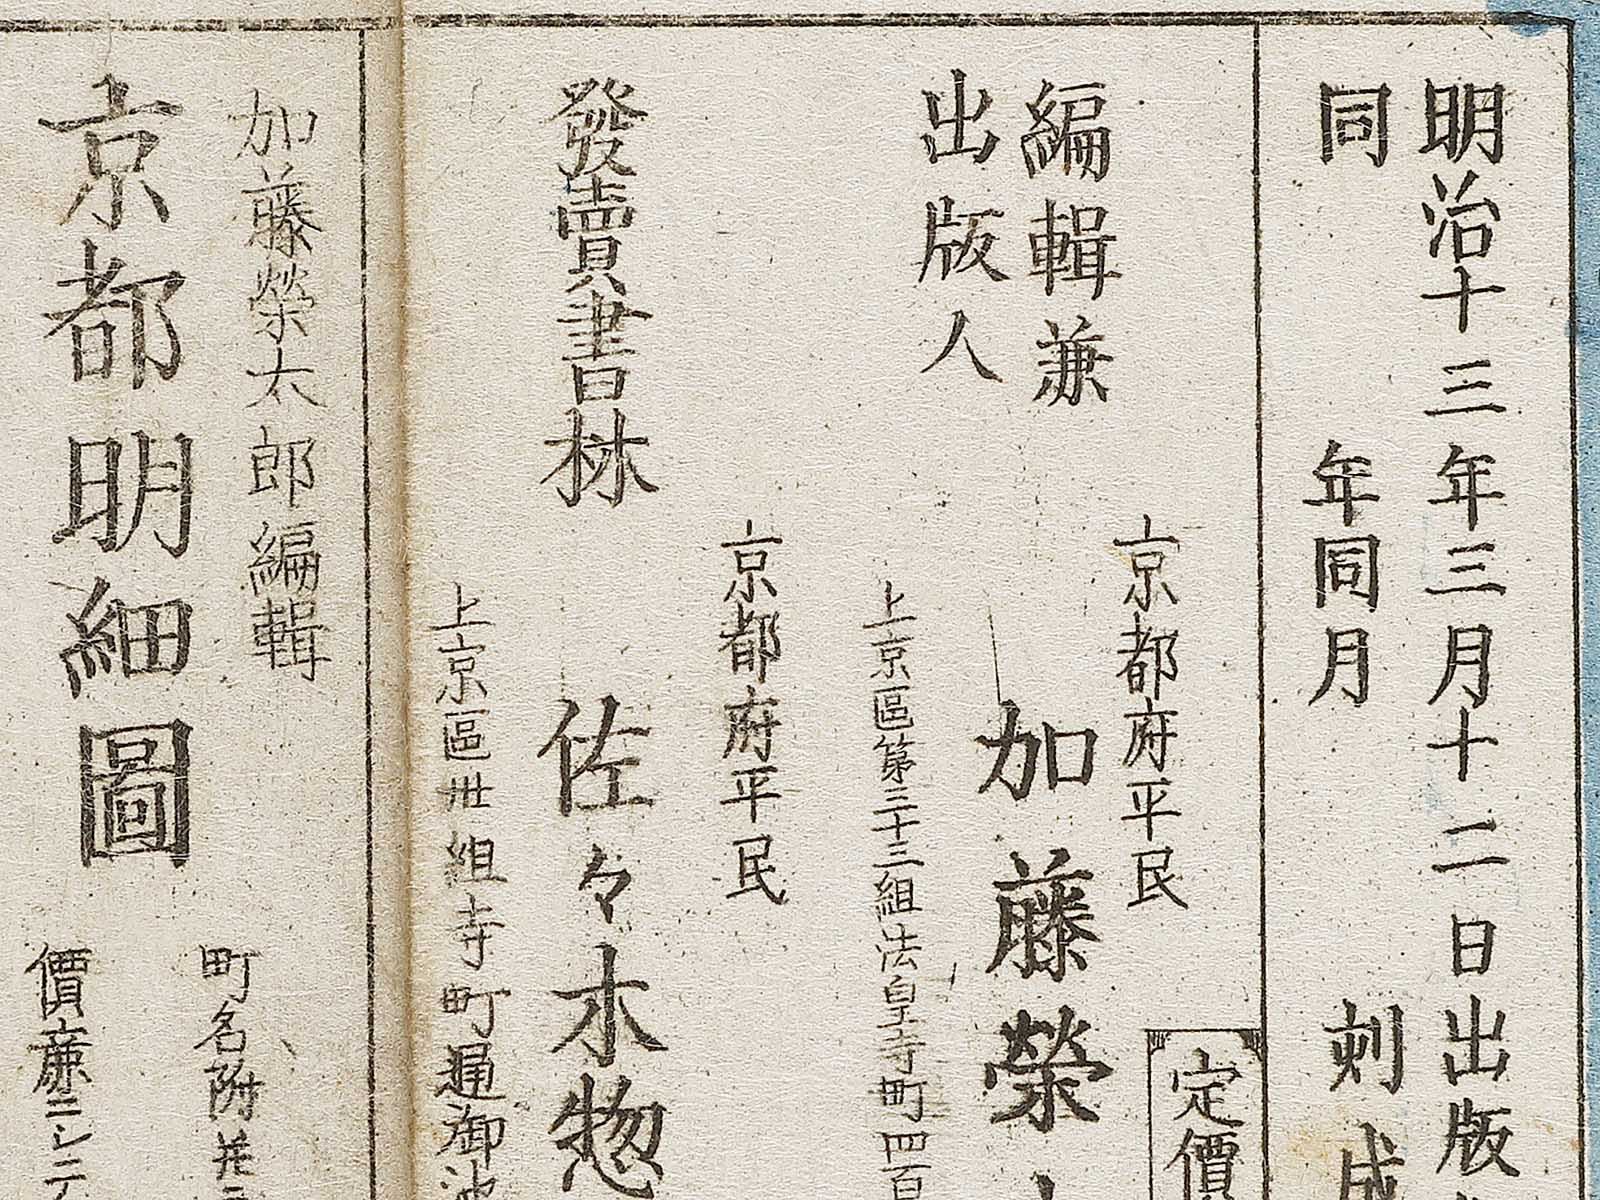 明治十三年三月十二日出版
同年同月刻成
定價
編輯兼
出版人
京都府平民
加藤榮
上京區第三十三組法皇寺町四百
發賣書林
京都府平民
佐々木惣
上京區丗組寺町通御池
加藤榮太郎編輯
京都明細圖
町名附並
價廉ニシテ